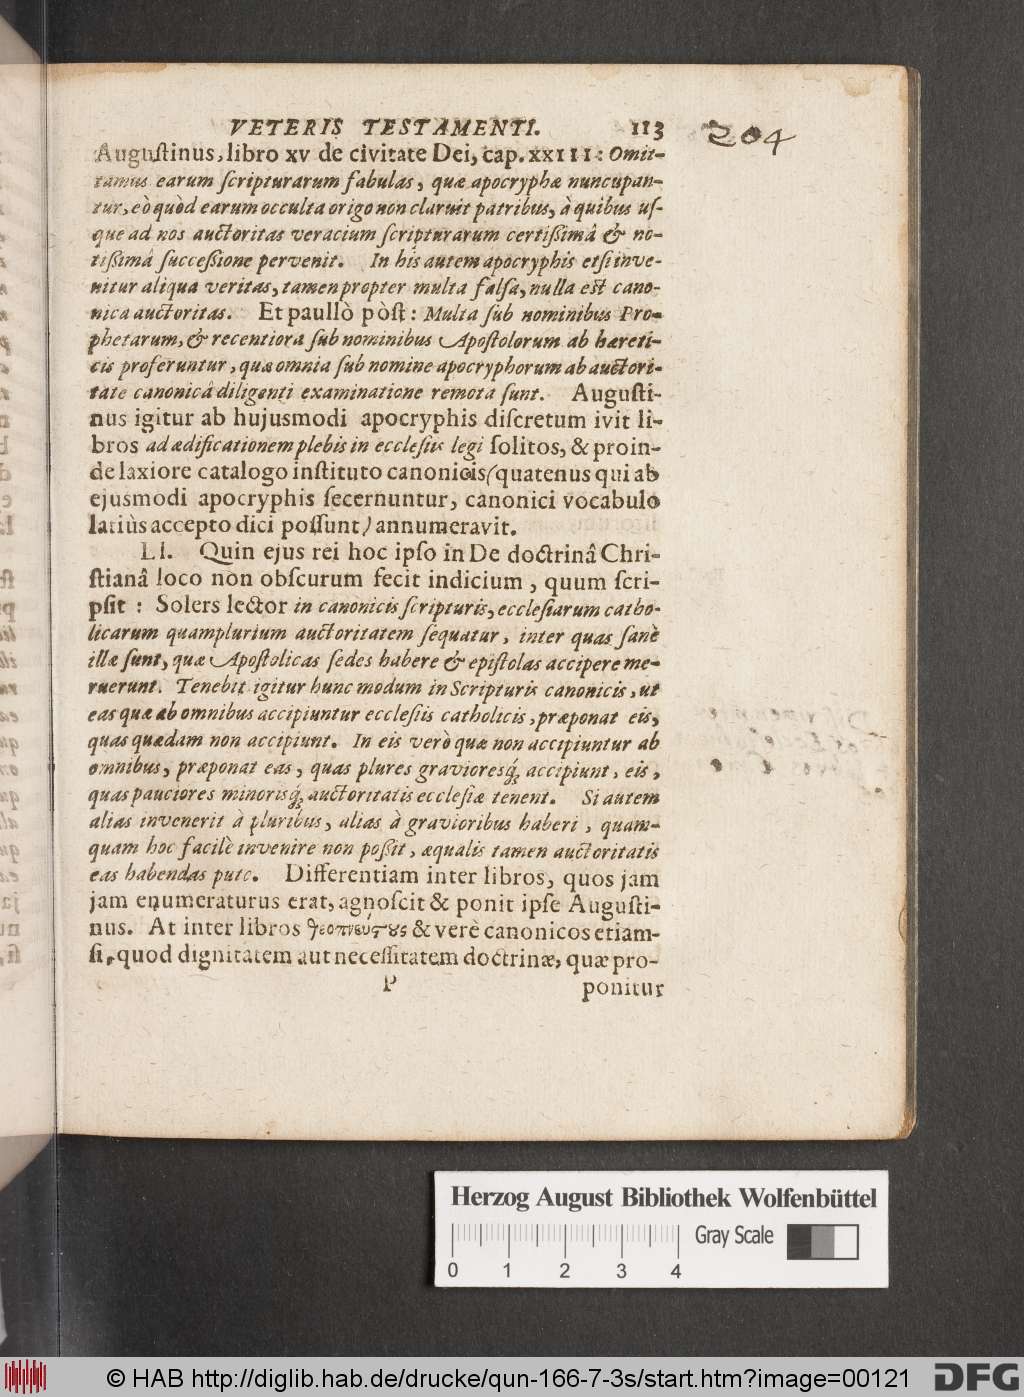 VETERIS TESTAMENTI. 113
204
Augustinus, libro xv de civitate Dei, cap. xxIII: Omit-
tamus earum ſcripturarum fabulas, quæ apocryphæ nuncupan-
tur, eò quòd earum occulta origo non claruit patribus, à quibus uſ-
que ad nos auctoritas veracium ſcripturarum certiſſimâ & no-
tiſſimâ ſucceſſione pervenit. In his autem apocryphis etſi inve-
nitur aliqua veritas, tamen propter multa falſa, nulla est cano-
nica auctoritas. Et paullò pòſt: Multa ſub nominibus Pro-
phetarum, & recentiora ſub nominibus Apoſtolorum ab hæreti-
cis proferuntur, quæ omnia ſub nomine apocryphorum ab auctori-
tate canonicâ diligenti examinatione remota ſunt. Auguſti-
nus igitur ab hujusmodi apocryphis diſcretum ivit li-
bros ad ædificationem plebis in eccleſiis legi ſolitos, & proin-
de laxiore catalogo inſtituto canonicis (quatenus qui ab
ejusmodi apocryphis ſecernuntur, canonici vocabulo
latiùs accepto dici poſſunt) annumeravit.
LI. Quin ejus rei hoc ipſo in De doctrinâ Chri-
ſtianâ loco non obſcurum fecit indicium, quum ſcri-
pſit: Solers lector in canonicis ſcripturis, eccleſiarum catho-
licarum quamplurium auctoritatem ſequatur, inter quas ſanè
illæ ſunt, quæ Apoſtolicas ſedes habere & epiſtolas accipere me-
ruerunt. Tenebit igitur hunc modum in Scripturis canonicis, ut
eas quæ ab omnibus accipiuntur eccleſiis catholicis, præponat eis,
quas quædam non accipiunt. In eis verò quæ non accipiuntur ab
omnibus, præponat eas, quas plures gravioresq́; accipiunt, eis,
quas pauciores minorisq́; auctoritatis eccleſiæ tenent. Si autem
alias invenerit à pluribus, alias à gravioribus haberi, quam-
quam hoc facilè invenire non poſſit, æqualis tamen auctoritatis
eas habendas puto. Differentiam inter libros, quos jam
jam enumeraturus erat, agnoſcit & ponit ipſe Auguſti-
nus. At inter libros θεοπνεύστους & verè canonicos etiam-
ſi, quod dignitatem aut neceſſitatem doctrinæ, quæ pro-
P ponitur
Herzog August Bibliothek Wolfenbüttel
Gray Scale
0 1 2 3 4
© HAB http://diglib.hab.de/drucke/qun-166-7-3s/start.htm?image=00121
DFG